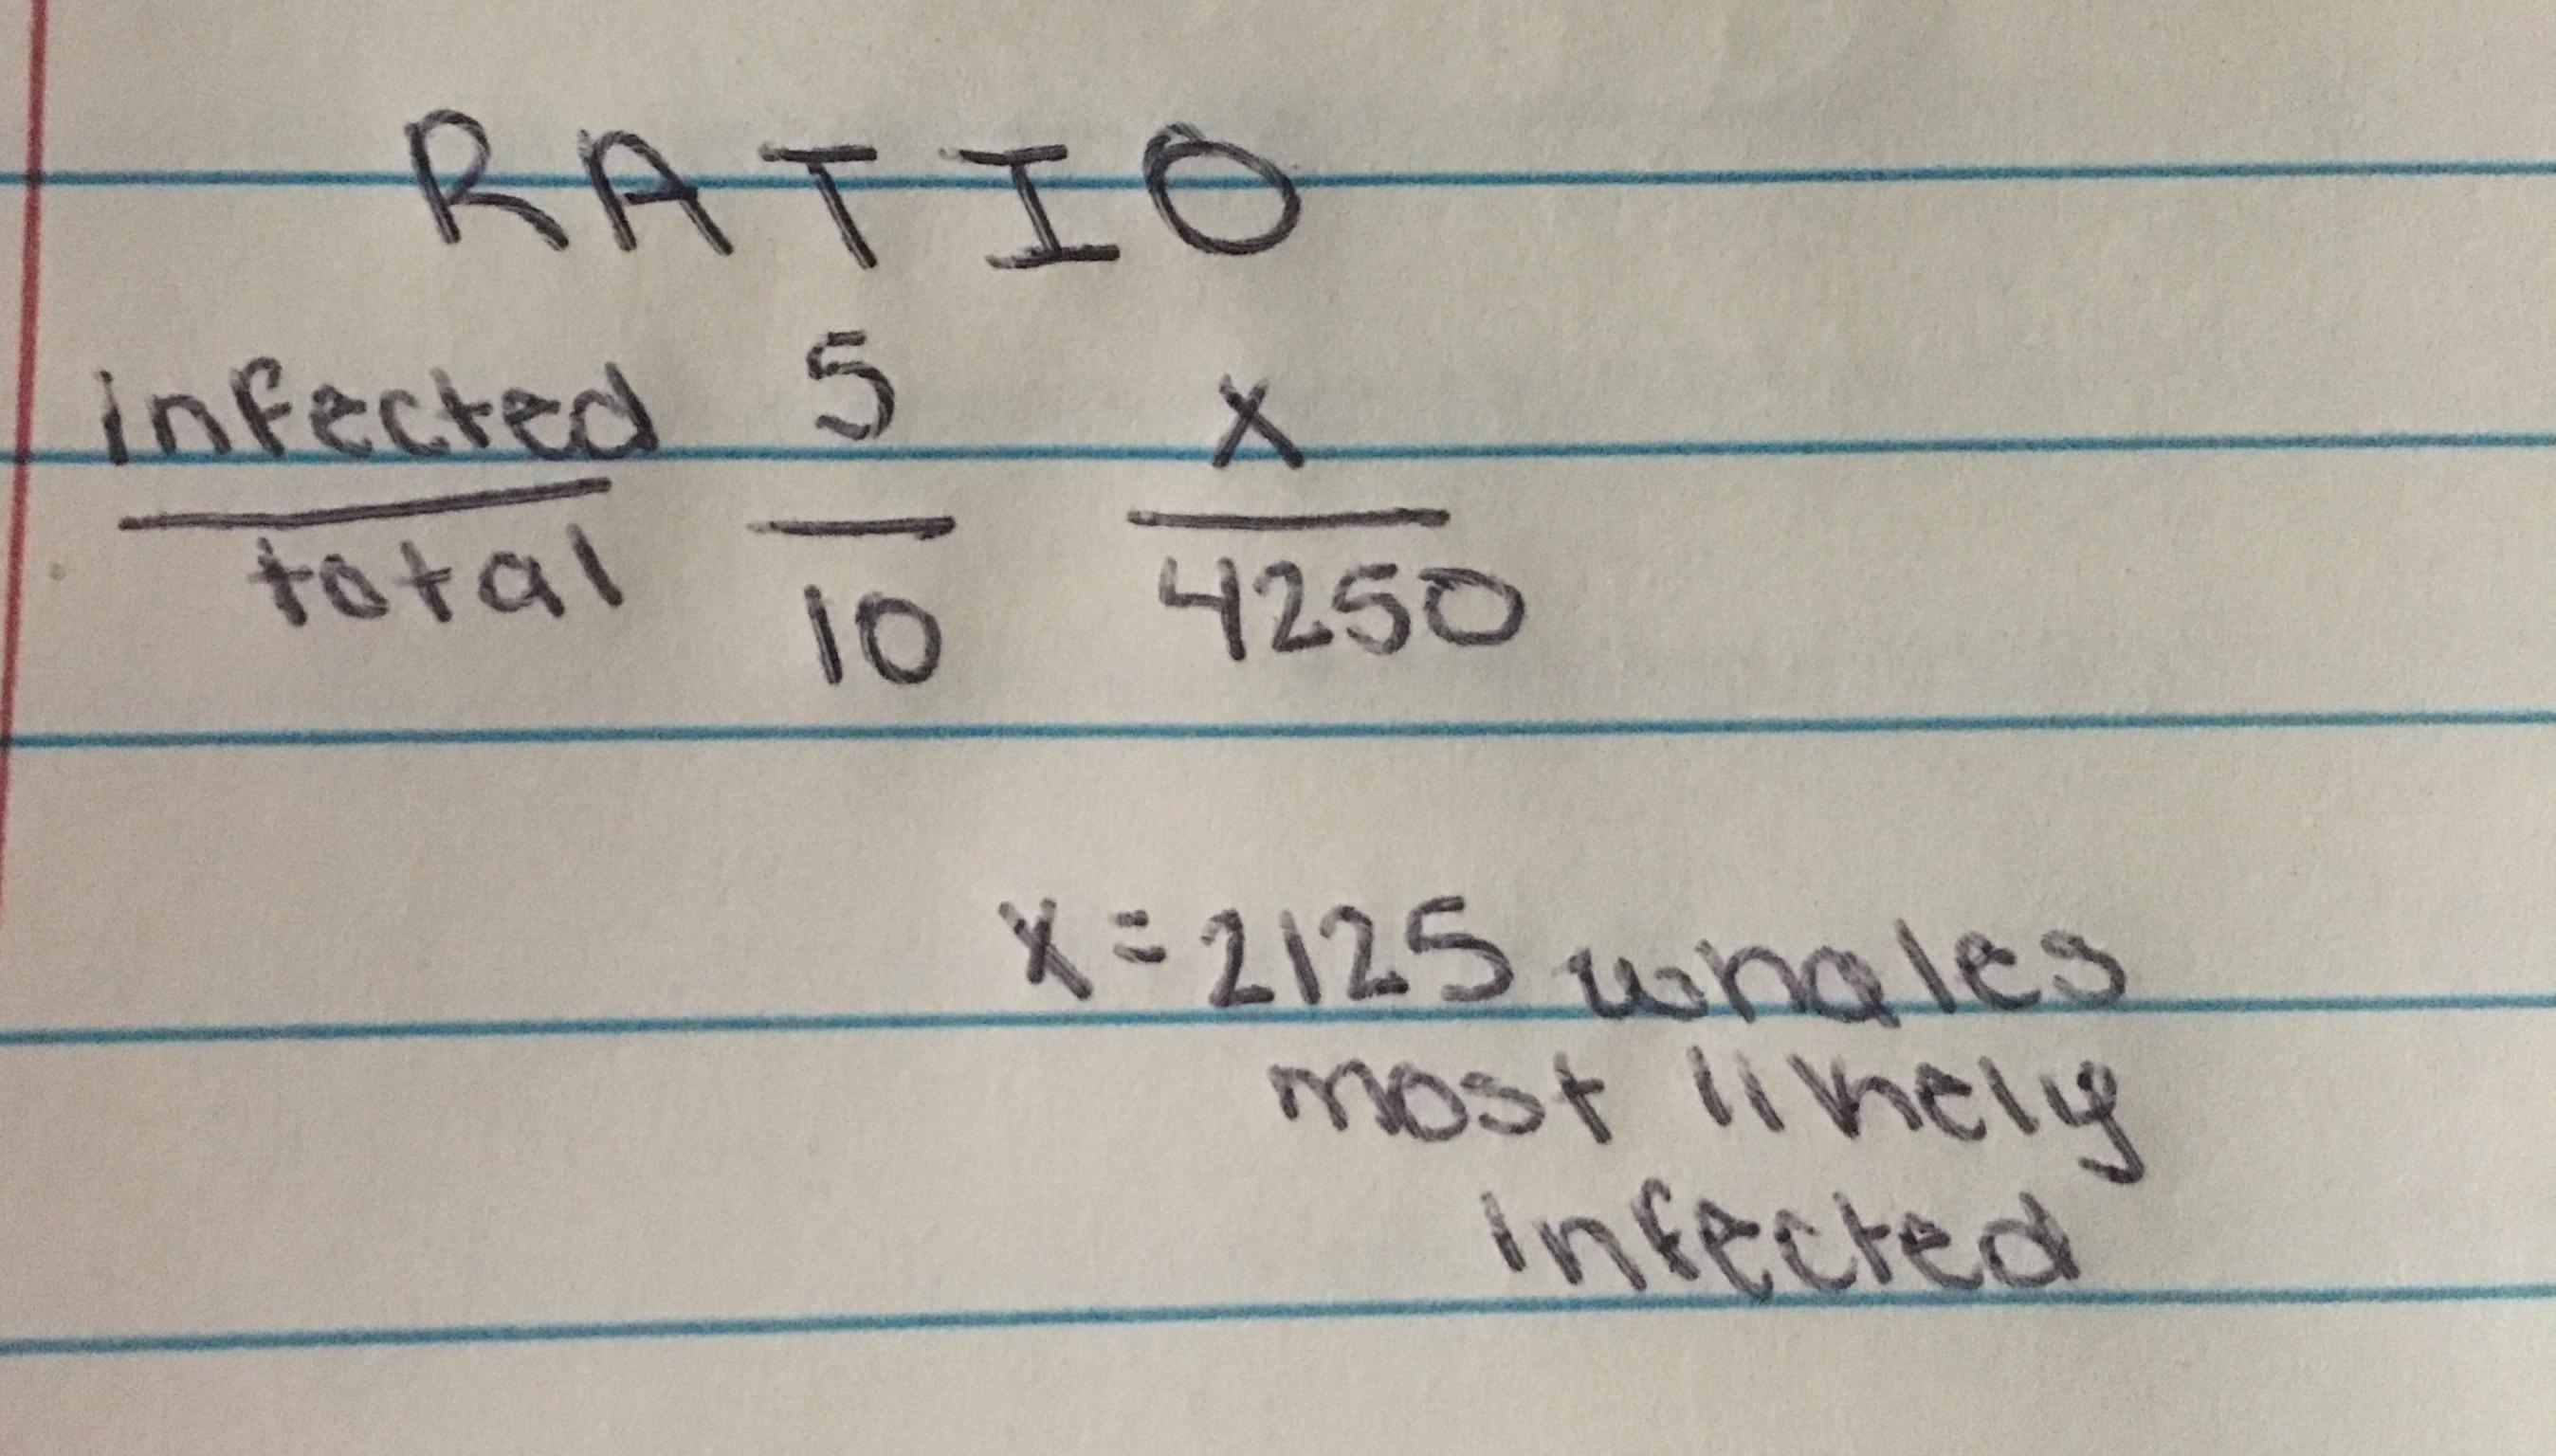 RATIO
infected 5 x
total 10 4250
x = 2125 whales
most likely
infected